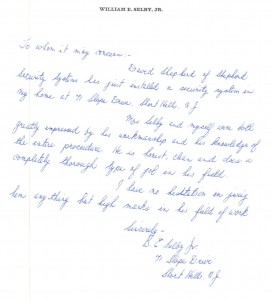 WILLIAM E. SELBY, JR.
To whom it may concern -
David Shepherd of Shepherd
Security Systems has just installed a security system in
my home at 71 Slope Drive, Short Hills, N.J.
Mrs Selby and myself were both
greatly impressed by his workmanship and his knowledge of
the entire procedure. He is honest, clean and does a
completely thorough type of job in his field.
I have no hesitation in giving
him anything but high marks in his field of work
Sincerely -
W. E. Selby Jr
71 Slope Drive
Short Hills, N.J.